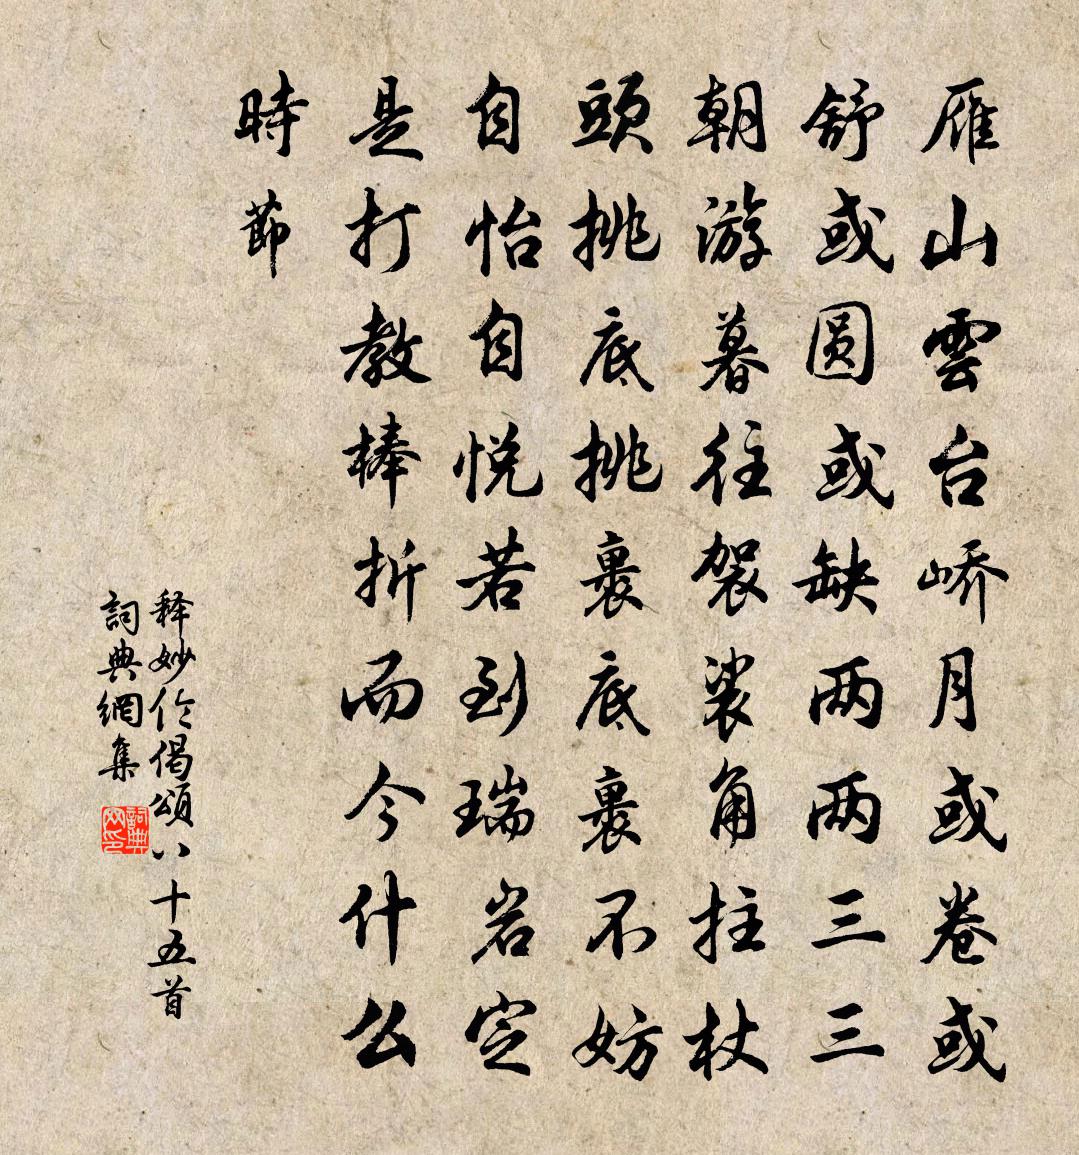 雁山雲台峤月或卷或
舒或圆或缺两两三三
朝游暮往袈裟角拄杖
頭挑底挑裹底裹不妨
自怡自悦若到瑞岩定
是打教棒折而今什么
時節
释妙伦偈頌八十五首
詞典網集
詞典网印